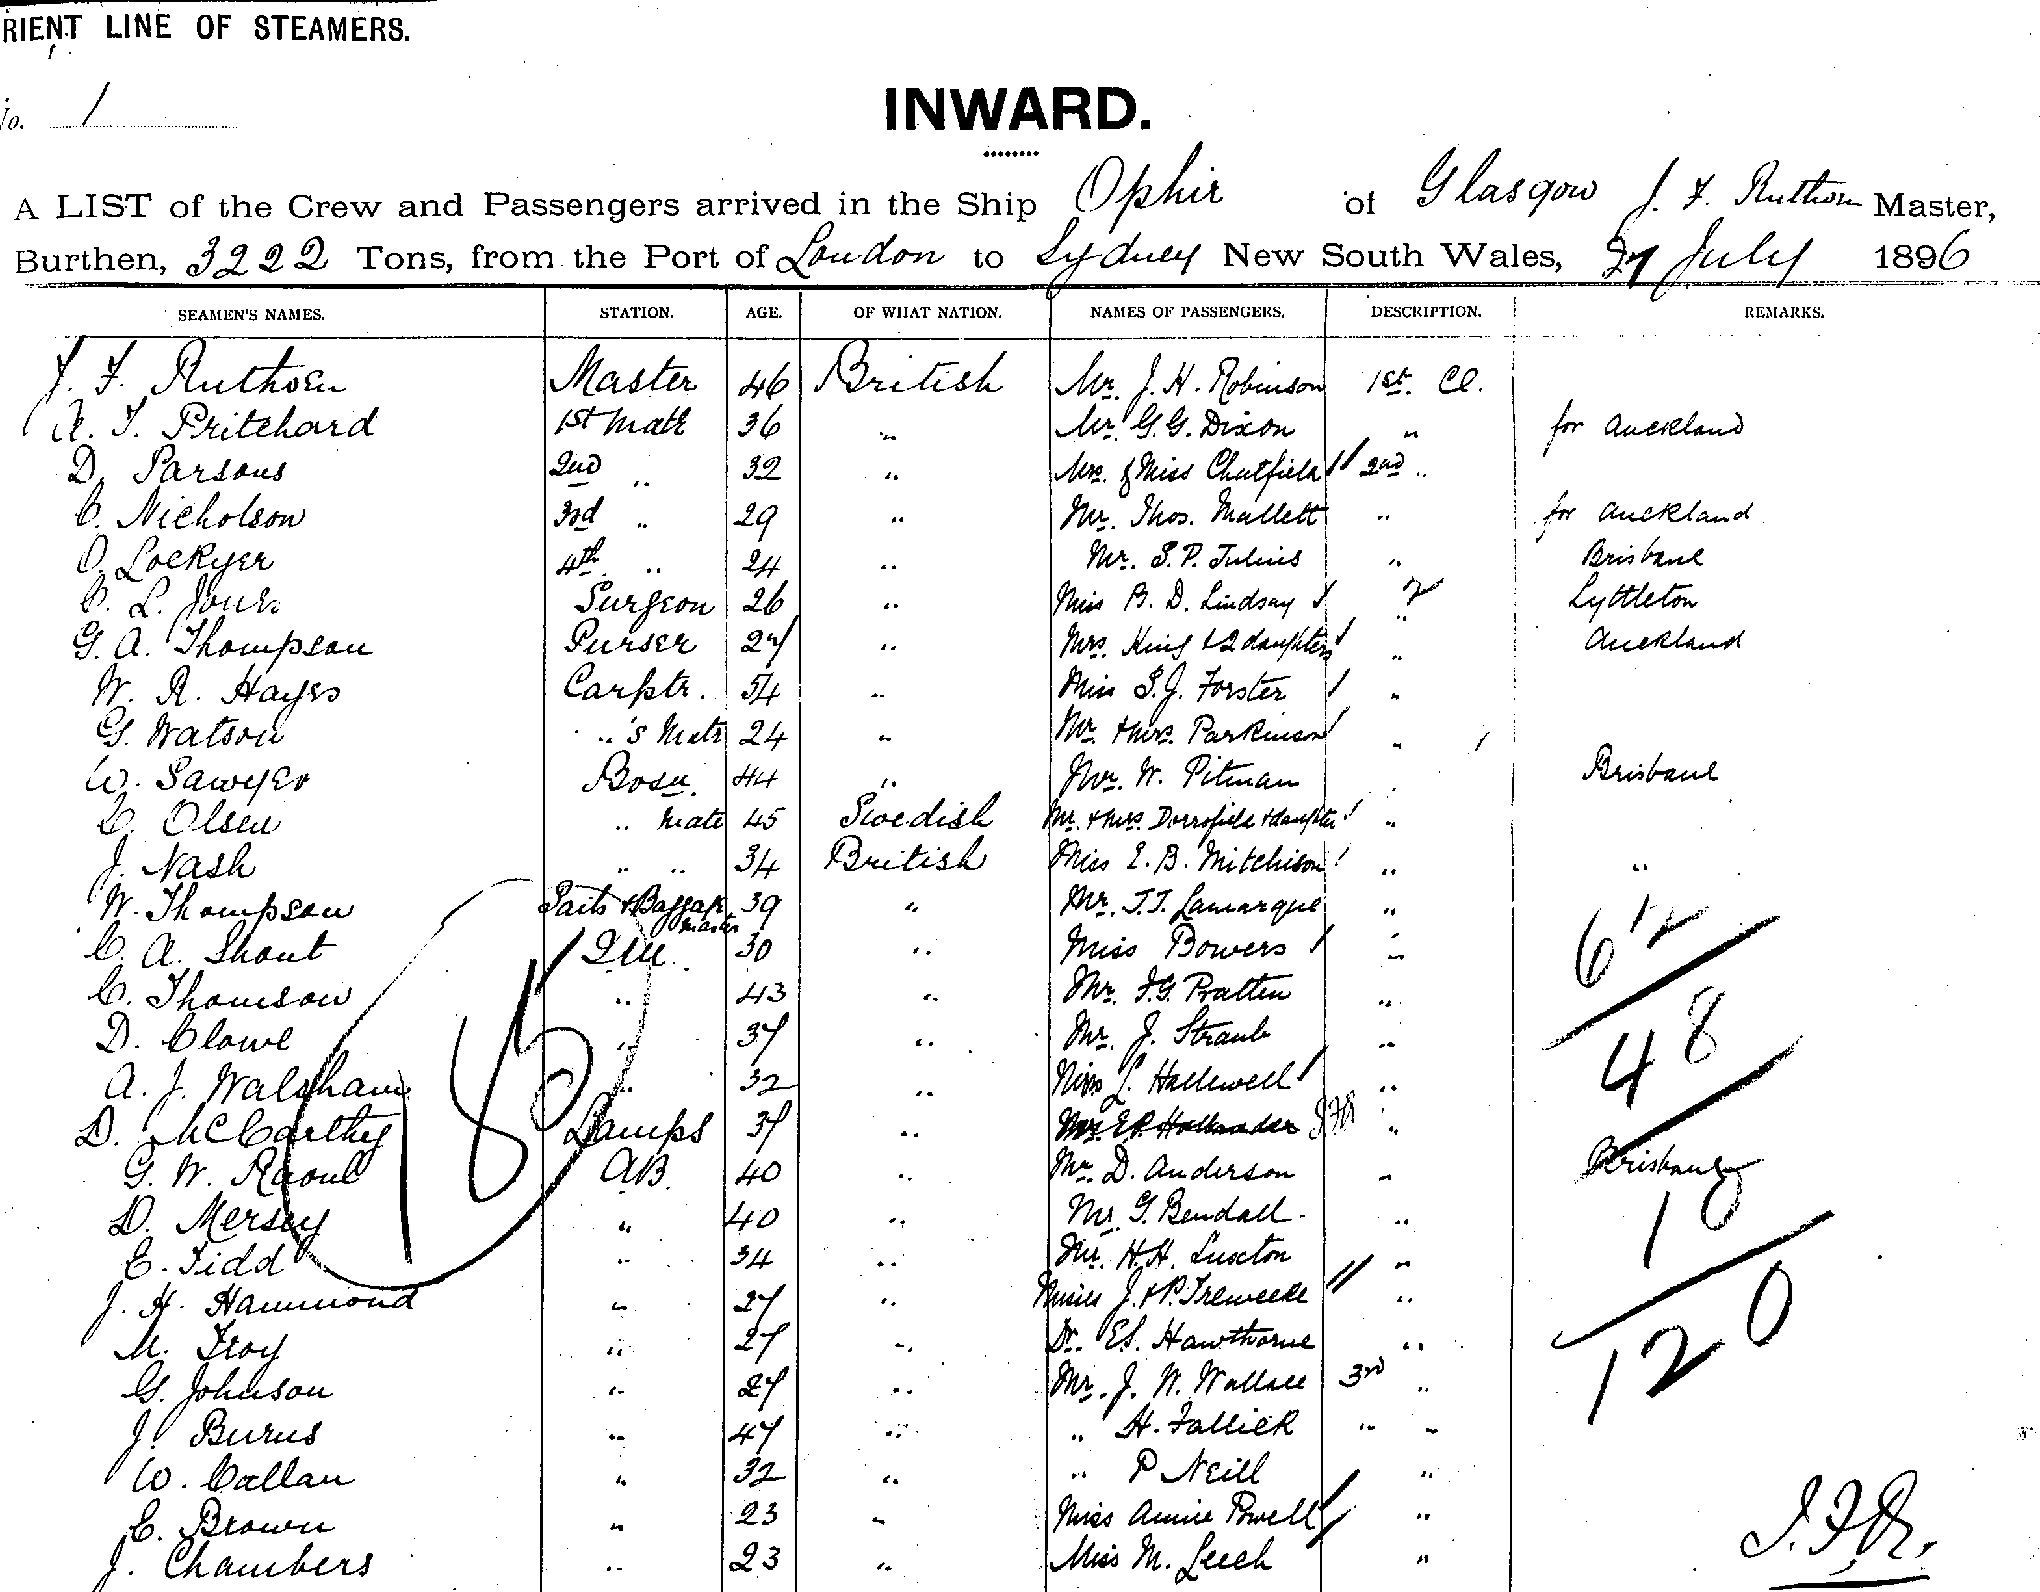 RIENT LINE OF STEAMERS.
No. 1
INWARD.
A LIST of the Crew and Passengers arrived in the Ship Ophir of Glasgow J. F. Ruthven Master,
Burthen, 3222 Tons, from the Port of London to Sydney New South Wales, 27 July 1896
SEAMEN'S NAMES. STATION. AGE. OF WHAT NATION. NAMES OF PASSENGERS. DESCRIPTION. REMARKS.
J. F. Ruthven Master 46 British Mr. J. H. Robinson 1st. Cl.
A. J. Pritchard 1st Mate 36 " Mr. G. G. Dixon " for Auckland
D. Parsons 2nd " 32 " Mrs. & Miss Chatfield 2nd "
C. Nicholson 3rd " 29 " Mr. Thos. Mallett " for Auckland
O. Lockyer 4th " 24 " Mr. S. P. Julius " Brisbane
C. L. Jones Surgeon 26 " Miss B. D. Lindsay " Lyttleton
G. A. Thompson Purser 27 " Mrs. King & 2 daughters " Auckland
W. R. Hayes Carptr. 54 " Miss S. J. Forster "
G. Watson "'s Mate 24 " Mr. & Mrs. Parkinson "
W. Sawyer Bosn. 44 " Mr. W. Pitman " Brisbane
C. Olsen " Mate 45 Swedish Mr. & Mrs. & daughter "
J. Nash " " 34 British Miss E. B. Mitchison " "
W. Thompson & Baggage Master 39 " Mr. J. J. Lamarque "
C. A. Shout Q.M. 30 " Miss Bowers "
C. Thomson " 43 " Mr. F. G. Pratten "
D. Clowe " 37 " Mr. J. Straub "
A. J. Walsham " 32 " Miss L. Hallewell "
D. McCarthy Lamps 37 " "
G. W. Raoul A.B. 40 " Mr. D. Anderson " Brisbane
D. Mersey " 40 " Mr. G. Bendall "
E. Tidd " 34 " Mr. H. H. Luxton "
J. H. Hammond " 27 " Misses J. & P. Treweeke "
M. Troy " 27 " Dr. E. S. Hawthorne "
G. Johnson " 27 " Mr. J. W. Wallace 3rd "
J. Burns " 47 " " H. Fallick " "
W. Callan " 32 " " P Neill "
C. Brown " 23 " Miss Annie Powell "
J. Chambers " 23 " Miss M. Leech "
612
48
18
120
J.F.R.